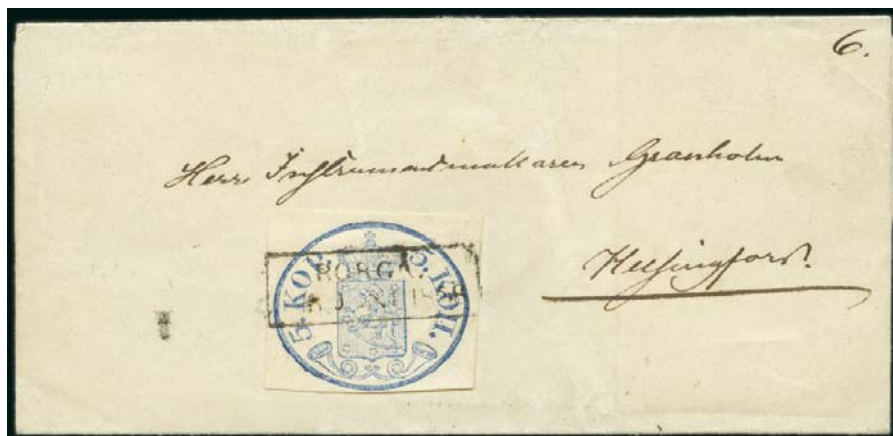 6.
Herr Instrumentmakaren Granholm
Helsingfors.
5. KOP. 5. КОП.
BORGÅ